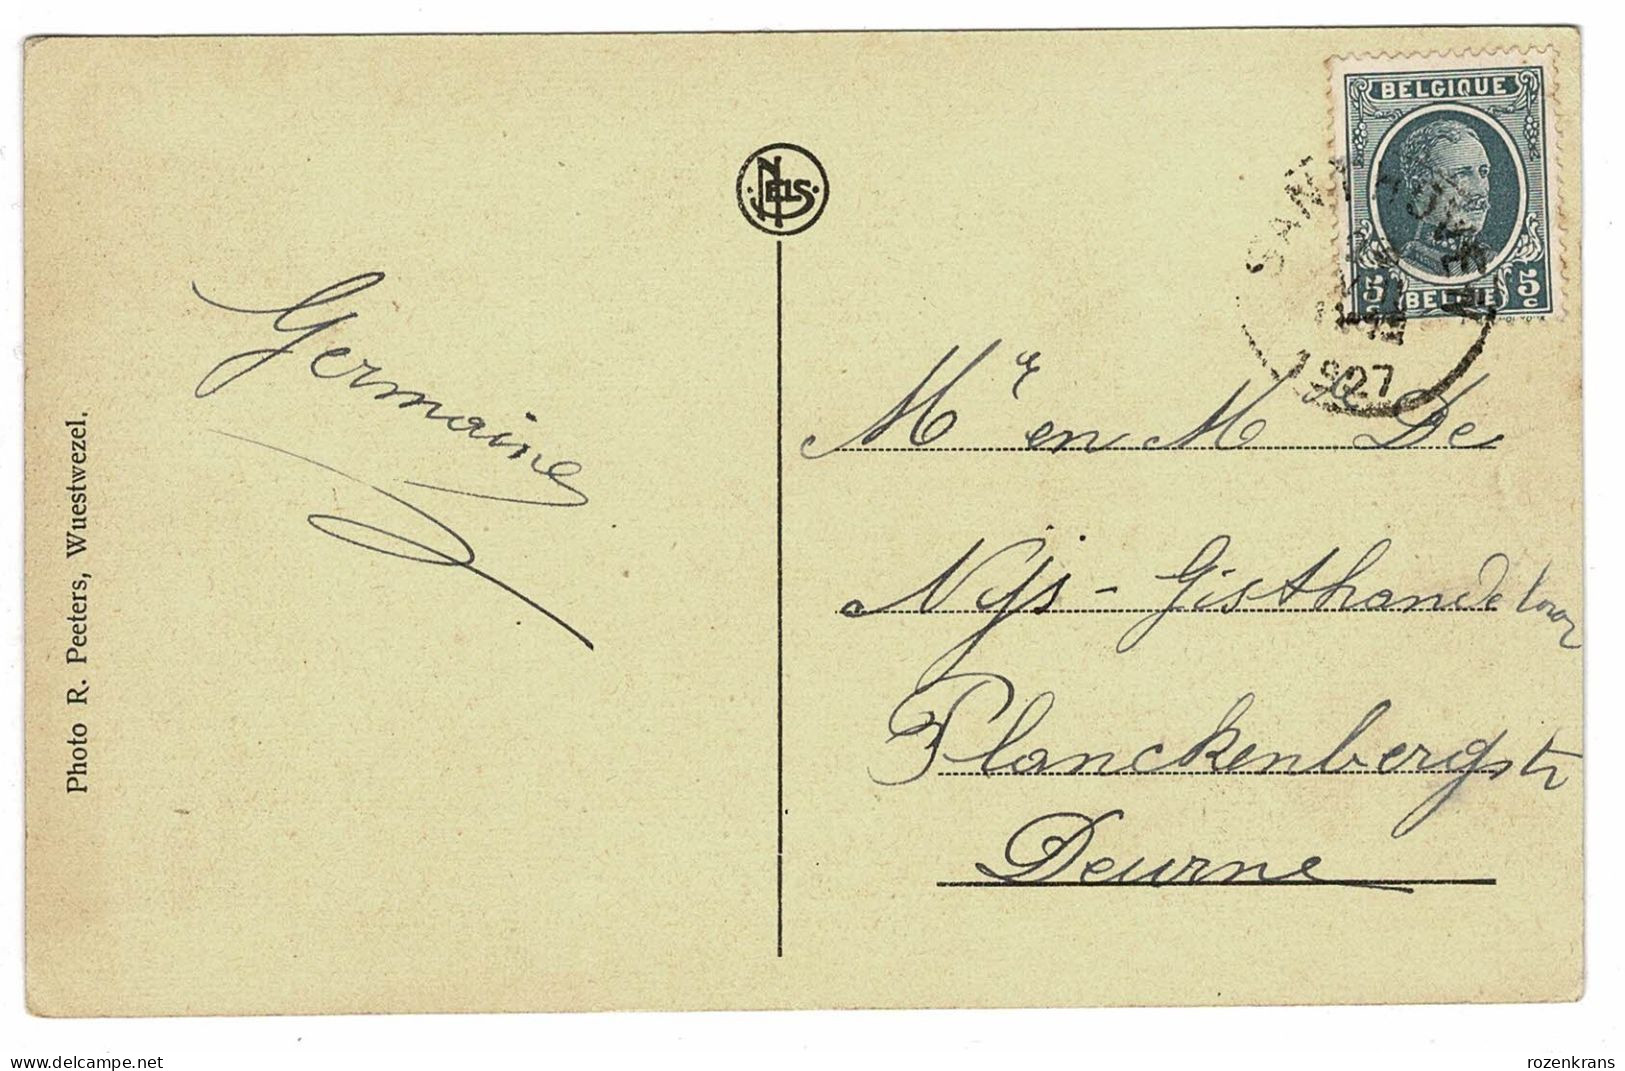 BELGIQUE
5 BELGIË 5
c c
SANTHOVEN
1927
NELS
Germaine
Photo R. Peeters, Wuestwezel.
Mr en Me De
Nijs - Gisthandelaar
Planckenbergstr
Deurne
www.delcampe.net
rozenkrans